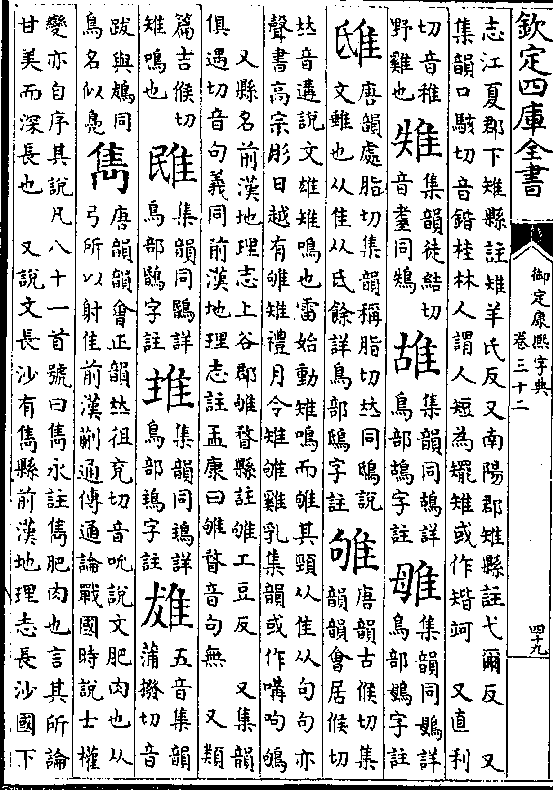 欽定四庫全書
御定康熙字典
卷三十二
四十九
志江夏郡下雉縣註雉羊氏反又南陽郡雉縣註弋爾反　又
集韻口駭切音鍇桂林人謂人短為𥏪雉或作矲𥏶　又直利
切音稚
野雞也
䧺集韻徒結切
音耋同鴩
䧸集韻同鴣詳
鳥部鴣字註
集韻同鴟詳
鳥部鵐字註
雎唐韻處脂切集韻稱脂切𠀤同鴟說
文雖也从隹从氐餘詳鳥部鴟字註
雊唐韻古候切集
韻韻會居候切
𠀤音遘說文雄雉鳴也雷始動雉鳴而雊其頸从隹从句句亦
聲書高宗肜日越有雊雉禮月令雉雊雞乳集韻或作呴鴝
又縣名前漢地理志上谷郡雊瞀縣註雊工豆反　又集韻
俱遇切音句義同前漢地理志註孟康曰雊瞀音句無　又類
篇吉候切
雉鳴也
集韻同鷗詳
鳥部鶥字註
集韻同鵶詳
鳥部鵶字註
五音集韻
蒲撥切音
跋與鵓同
鳥名似鳧
雋唐韻韻會正韻𠀤徂兗切音吮說文肥肉也从
弓所以射隹前漢蒯通傳通論戰國時說士權
變亦自序其說凡八十一首號曰雋永註雋肥肉也言其所論
甘美而深長也　又說文長沙有雋縣前漢地理志長沙國下